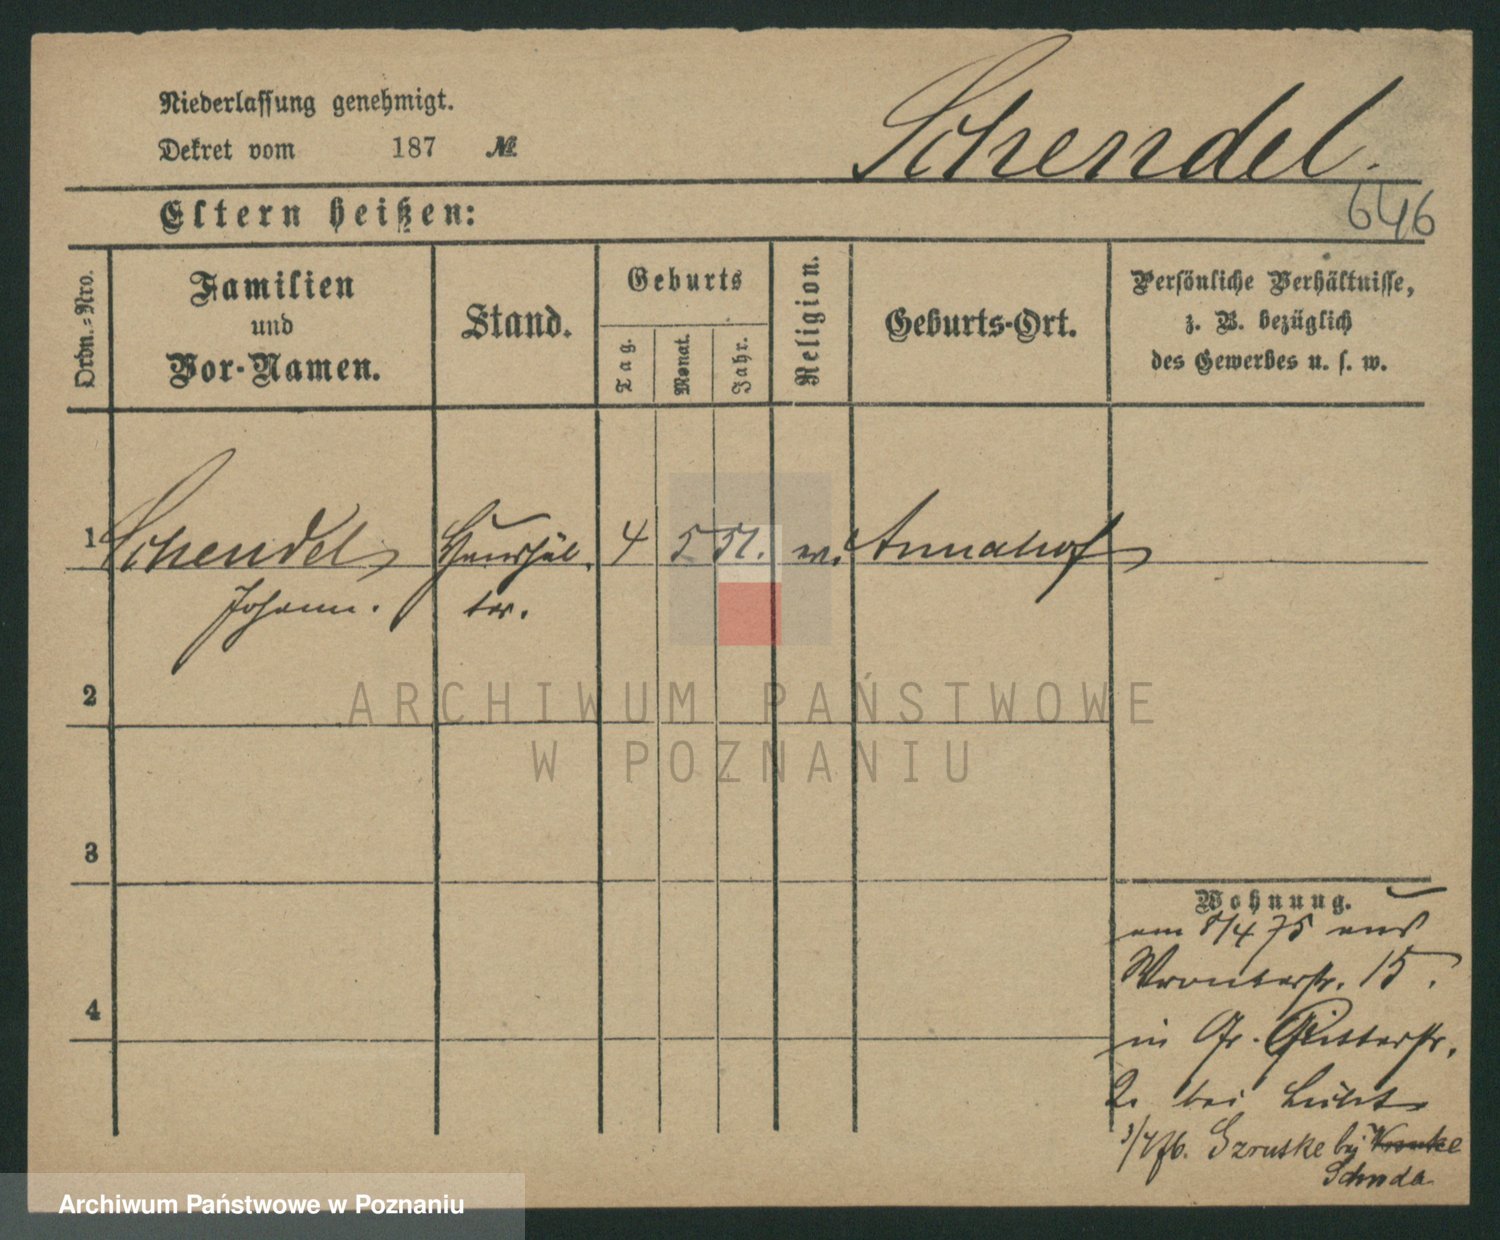 Niederlassung genehmigt.
Dekret vom 187 №
Schendel.
646
Eltern heißen:
Ordn.=Nro.
Familien
und
Vor-Namen.
Stand.
Geburts
Tag.
Monat.
Jahr.
Religion.
Geburts-Ort.
Persönliche Verhältnisse,
z. B. bezüglich
des Gewerbes u. s. w.
1 Schendel Haushäl. 4 5 51. ev. Annahof
Johann. ter.
2
ARCHIWUM PAŃSTWOWE
W POZNANIU
3
Wohnung.
am 8/4 75 aus
Wronkerstr. 15.
in Gr. Ritterstr.
2. bei
bei Wronke
Archiwum Państwowe w Poznaniu